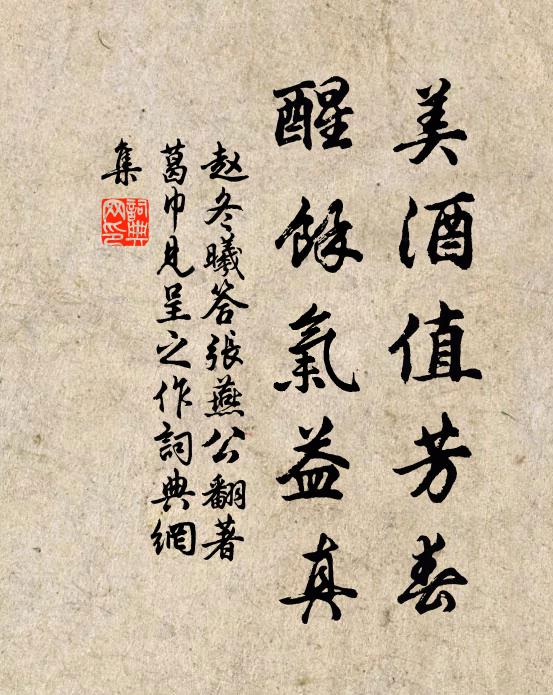 美酒值芳春
醒餘氣益真
赵冬曦答張燕公翻著
葛巾見呈之作詞典網
集
詞典
网印